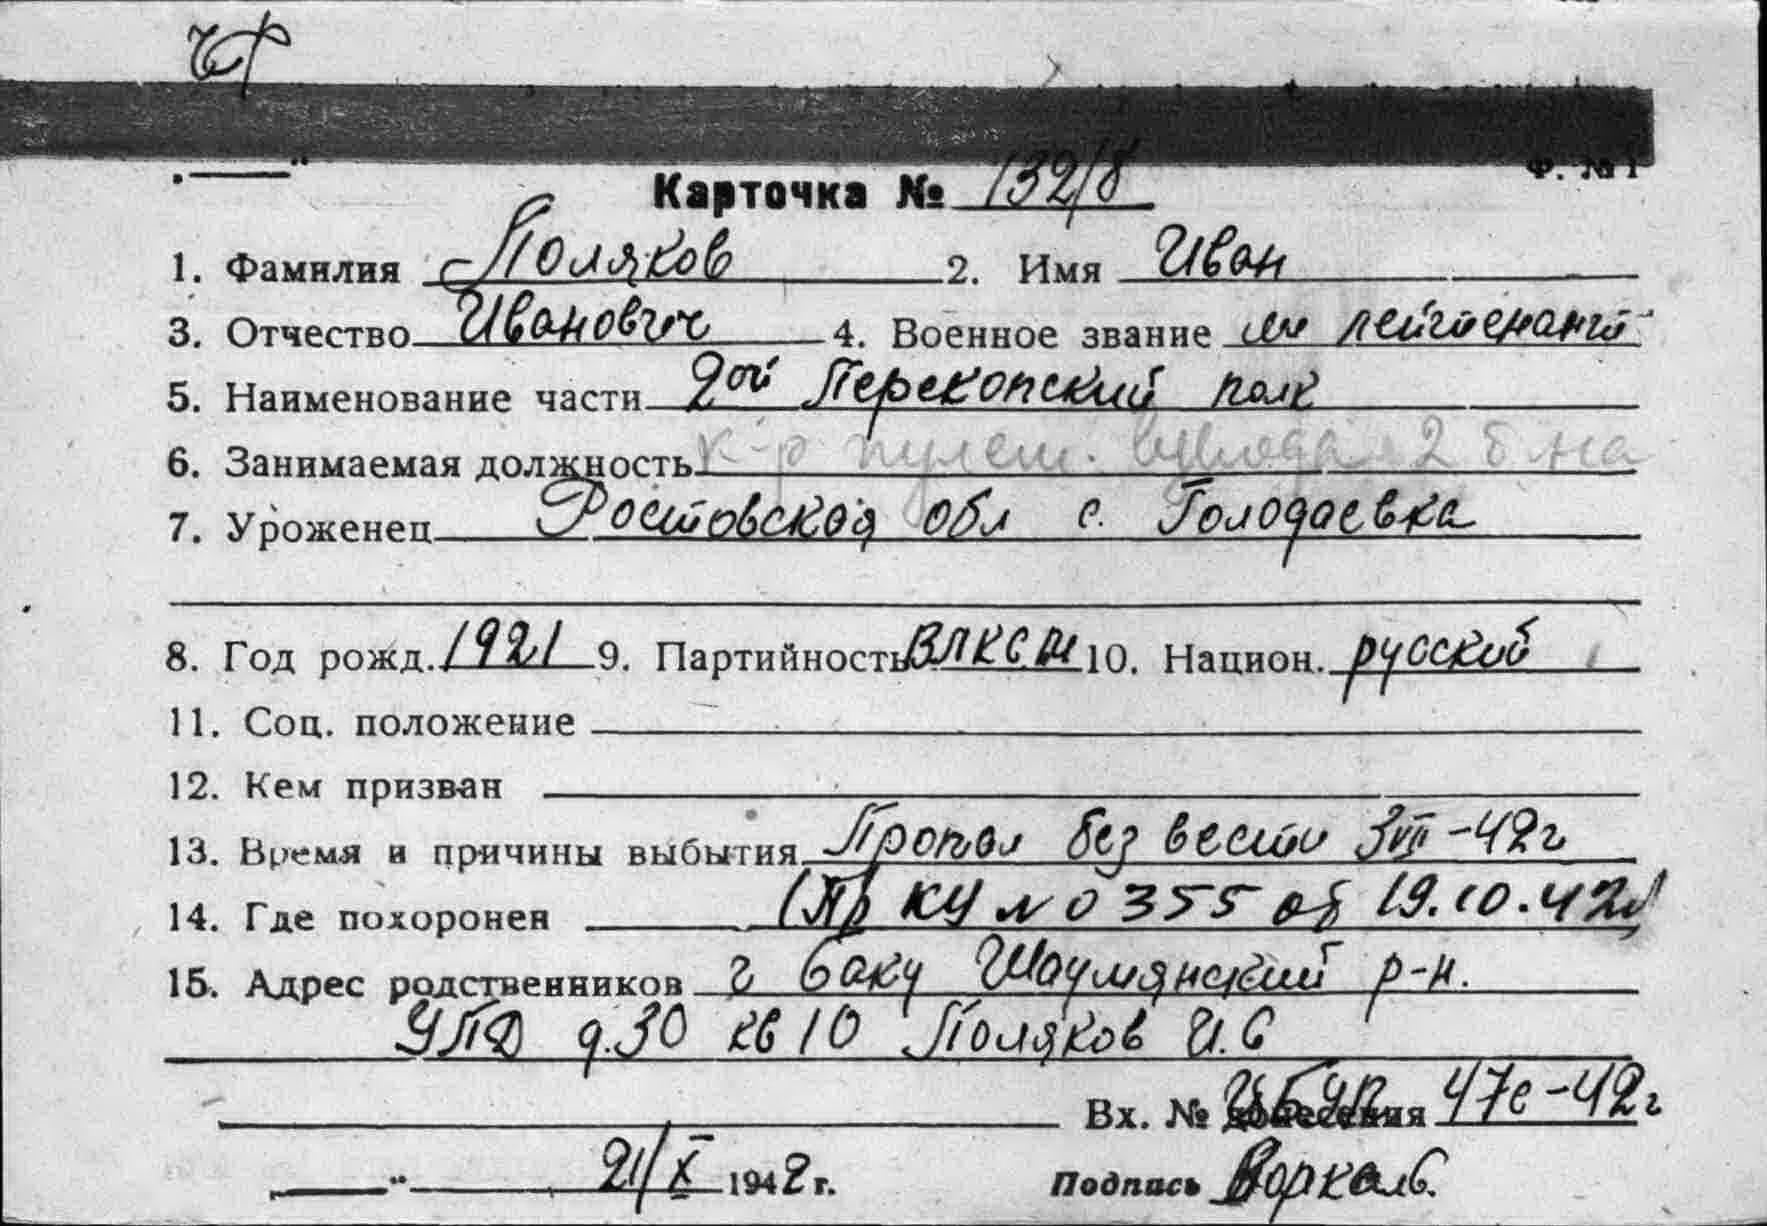 ЧФ
Ф. № 1
Карточка № 132/8
1. Фамилия Поляков 2. Имя Иван
3. Отчество Иванович 4. Военное звание мл лейтенант
5. Наименование части 2ой Перекопский полк
6. Занимаемая должность к-р пулем. взвода 2 б-на
7. Уроженец Ростовская обл с. Голодаевка
8. Год рожд. 1921 9. Партийность ВЛКСМ 10. Национ. русский
11. Соц. положение
12. Кем призван
13. Время и причины выбытия Пропал без вести 3 VII-42г
14. Где похоронен (Пр КУ № 0355 от 19.10.42г)
15. Адрес родственников г Баку Шаумянский р-н.
УПД д.30 кв 10 Поляков И.С
Вх. № донесения 47с-42г
21/X 1942 г. Подпись